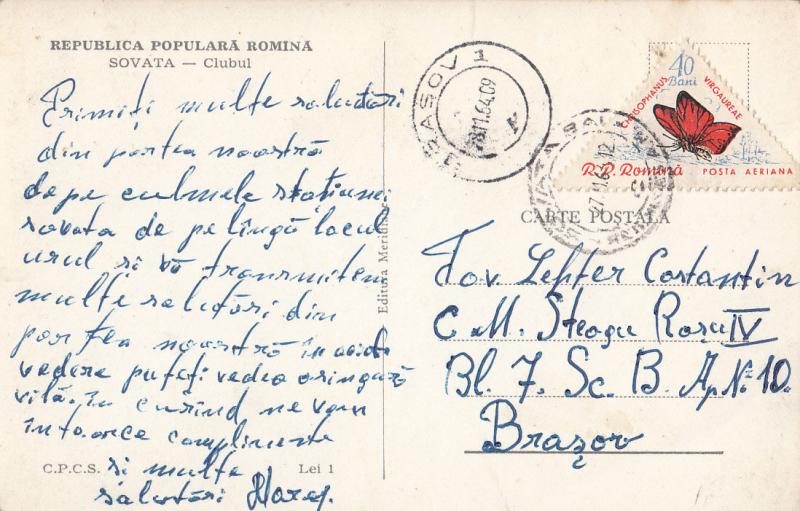 REPUBLICA POPULARĂ ROMÎNĂ
SOVATA — Clubul
Primiți multe salutări
din partea noastră
de pe culmele stațiunei
sovata de pe lîngă lacul
ursul si vă transmitem
multe salutări din
partea noastră în
vedere puteți vedea
vilă. în curînd ne vom
întoarce complimente
si multe
salutări
C.P.C.S.
Lei 1
Editura Meridiane
BRAȘOV 1
28.11.64.09
40
Bani
CHRYSOPHANUS
VIRGAUREAE
R.P. Romînă
POSTA AERIANA
CARTE POȘTALĂ
Tov. Lefter Costantin
C.M. Steagu Roșu IV
Bl. 7. Sc. B. Ap. No 10.
Brașov